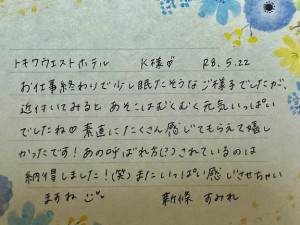 トキワウエストホテル K様♡ R8.5.22
お仕事終わりで少し眠たそうなご様子でしたが、
近付いてみると あそこはむくむく元気いっぱい
でしたね♡ 素直にたくさん感じてもらえて嬉し
かったです！あの呼ばれ方(？)されているのは
納得しました！(笑)またいっぱい感じさせちゃい
ますね 新條 すみれ